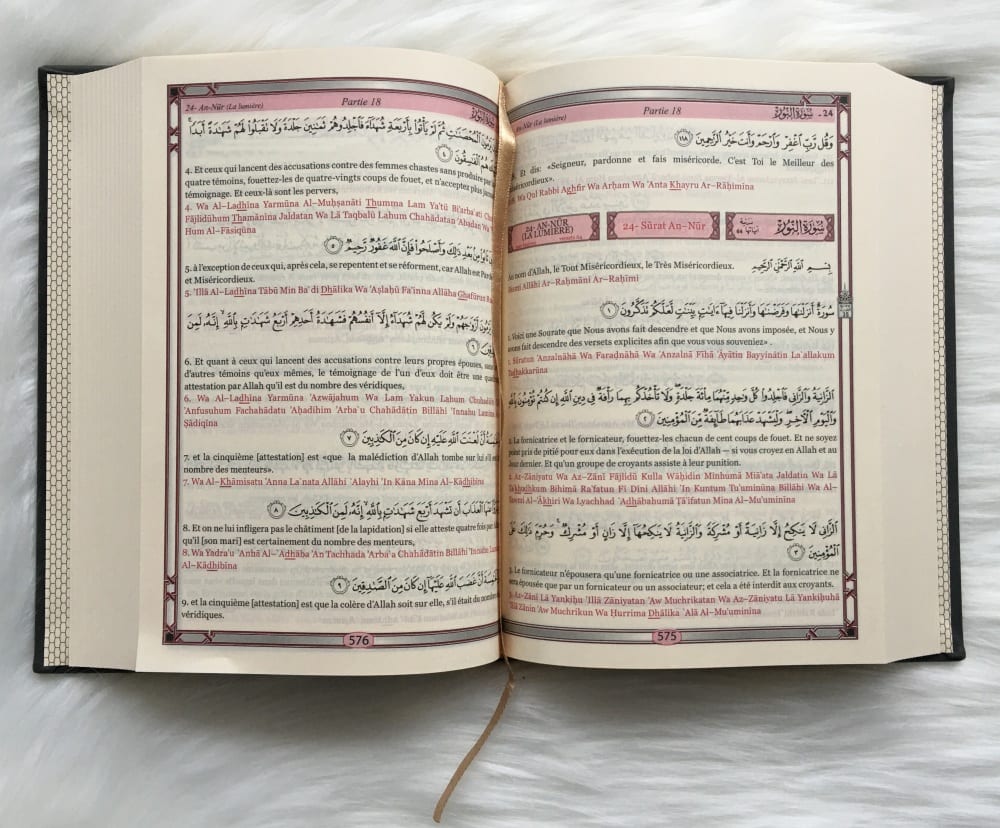 An-Nūr (La lumière) Partie 18 سُورَةُ النُّورِ - 24
وَقُل رَّبِّ ٱغْفِرْ وَٱرْحَمْ وَأَنتَ خَيْرُ ٱلرَّٰحِمِينَ ١١٨
Et dis: «Seigneur, pardonne et fais miséricorde. C'est Toi le Meilleur des
miséricordieux».
Wa Qul Rabbi Aghfir Wa Arĥam Wa 'Anta Khayru Ar-Rāĥimīna
24- AN-NŪR
(LA LUMIÈRE)
24- Sūrat An-Nūr
سُورَةُ النُّورِ
Au nom d'Allah, le Tout Miséricordieux, le Très Miséricordieux. بِسْمِ ٱللَّهِ ٱلرَّحْمَٰنِ ٱلرَّحِيمِ
Bismi Allāhi Ar-Raĥmāni Ar-Raĥīmi
سُورَةٌ أَنزَلْنَٰهَا وَفَرَضْنَٰهَا وَأَنزَلْنَا فِيهَآ ءَايَٰتٍۭ بَيِّنَٰتٍ لَّعَلَّكُمْ تَذَكَّرُونَ ١
1. Voici une Sourate que Nous avons fait descendre et que Nous avons imposée, et Nous y
avons fait descendre des versets explicites afin que vous vous souveniez» .
1. Sūratun 'Anzalnāhā Wa Faradnāhā Wa 'Anzalnā Fīhā 'Āyātin Bayyinātin La`allakum
Tadhakkarūna
ٱلزَّانِيَةُ وَٱلزَّانِى فَٱجْلِدُوا۟ كُلَّ وَٰحِدٍ مِّنْهُمَا مِا۟ئَةَ جَلْدَةٍ وَلَا تَأْخُذْكُم بِهِمَا رَأْفَةٌ فِى دِينِ ٱللَّهِ إِن كُنتُمْ تُؤْمِنُونَ بِٱللَّهِ
وَٱلْيَوْمِ ٱلْءَاخِرِ وَلْيَشْهَدْ عَذَابَهُمَا طَآئِفَةٌ مِّنَ ٱلْمُؤْمِنِينَ ٢
2. La fornicatrice et le fornicateur, fouettez-les chacun de cent coups de fouet. Et ne soyez
point pris de pitié pour eux dans l'exécution de la loi d'Allah – si vous croyez en Allah et au
Jour dernier. Et qu'un groupe de croyants assiste à leur punition.
2. Az-Zāniyatu Wa Az-Zānī Fājlidū Kulla Wāĥidin Minhumā Miā'ata Jaldatin Wa Lā
Ta'khudhkum Bihimā Ra'fatun Fī Dīni Allāhi 'In Kuntum Tu'uminūna Billāhi Wa Al-
Yawmi Al-'Ākhiri Wa Lyachhad `Adhābahumā Ţā'ifatun Mina Al-Mu'uminīna
ٱلزَّانِى لَا يَنكِحُ إِلَّا زَانِيَةً أَوْ مُشْرِكَةً وَٱلزَّانِيَةُ لَا يَنكِحُهَآ إِلَّا زَانٍ أَوْ مُشْرِكٌ وَحُرِّمَ ذَٰلِكَ عَلَى
ٱلْمُؤْمِنِينَ ٣
3. Le fornicateur n'épousera qu'une fornicatrice ou une associatrice. Et la fornicatrice ne
sera épousée que par un fornicateur ou un associateur; et cela a été interdit aux croyants.
3. Az-Zānī Lā Yankiĥu 'Illā Zāniyatan 'Aw Muchrikatan Wa Az-Zāniyatu Lā Yankiĥuhā
'Illā Zānin 'Aw Muchrikun Wa Ĥurrima Dhālika `Alá Al-Mu'uminīna
575
24- An-Nūr (La lumière) Partie 18 سُورَةُ النُّورِ
ٱلْمُحْصَنَٰتِ ثُمَّ لَمْ يَأْتُوا۟ بِأَرْبَعَةِ شُهَدَآءَ فَٱجْلِدُوهُمْ ثَمَٰنِينَ جَلْدَةً وَلَا تَقْبَلُوا۟ لَهُمْ شَهَٰدَةً أَبَدًا
هُمُ ٱلْفَٰسِقُونَ ٤
4. Et ceux qui lancent des accusations contre des femmes chastes sans produire par
quatre témoins, fouettez-les de quatre-vingts coups de fouet, et n'acceptez plus
témoignage. Et ceux-là sont les pervers,
4. Wa Al-Ladhīna Yarmūna Al-Muĥşanāti Thumma Lam Ya'tū Bi'arba`ati
Fājlidūhum Thamānīna Jaldatan Wa Lā Taqbalū Lahum Chahādatan 'Abadan Wa
Hum Al-Fāsiqūna
مِنۢ بَعْدِ ذَٰلِكَ وَأَصْلَحُوا۟ فَإِنَّ ٱللَّهَ غَفُورٌ رَّحِيمٌ ٥
5. à l'exception de ceux qui, après cela, se repentent et se réforment, car Allah est
et Miséricordieux.
5. 'Illā Al-Ladhīna Tābū Min Ba`di Dhālika Wa 'Aşlaĥū Fa'inna Allāha Ghafūrun
أَزْوَٰجَهُمْ وَلَمْ يَكُن لَّهُمْ شُهَدَآءُ إِلَّآ أَنفُسُهُمْ فَشَهَٰدَةُ أَحَدِهِمْ أَرْبَعُ شَهَٰدَٰتٍۭ بِٱللَّهِ إِنَّهُۥ لَمِنَ
٦
6. Et quant à ceux qui lancent des accusations contre leurs propres épouses,
d'autres témoins qu'eux mêmes, le témoignage de l'un d'eux doit être une
attestation par Allah qu'il est du nombre des véridiques,
6. Wa Al-Ladhīna Yarmūna 'Azwājahum Wa Lam Yakun Lahum
'Anfusuhum Fachahādatu 'Aĥadihim 'Arba`u Chahādātin Billāhi 'Innahu Lamina
Şādiqīna
أَنَّ لَعْنَتَ ٱللَّهِ عَلَيْهِ إِن كَانَ مِنَ ٱلْكَٰذِبِينَ ٧
7. et la cinquième [attestation] est «que la malédiction d'Allah tombe sur lui
nombre des menteurs».
7. Wa Al-Khāmisatu 'Anna La`nata Allāhi `Alayhi 'In Kāna Mina Al-Kādhibīna
ٱلْعَذَابَ أَن تَشْهَدَ أَرْبَعَ شَهَٰدَٰتٍۭ بِٱللَّهِ إِنَّهُۥ لَمِنَ ٱلْكَٰذِبِينَ ٨
8. Et on ne lui infligera pas le châtiment [de la lapidation] si elle atteste quatre fois
qu'il [son mari] est certainement du nombre des menteurs,
8. Wa Yadra'u `Anhā Al-`Adhāba 'An Tachhada 'Arba`a Chahādātin Billāhi 'Innahu
Al-Kādhibīna
أَنَّ غَضَبَ ٱللَّهِ عَلَيْهَآ إِن كَانَ مِنَ ٱلصَّٰدِقِينَ ٩
9. et la cinquième [attestation] est que la colère d'Allah soit sur elle, s'il était du nombre
véridiques.
576